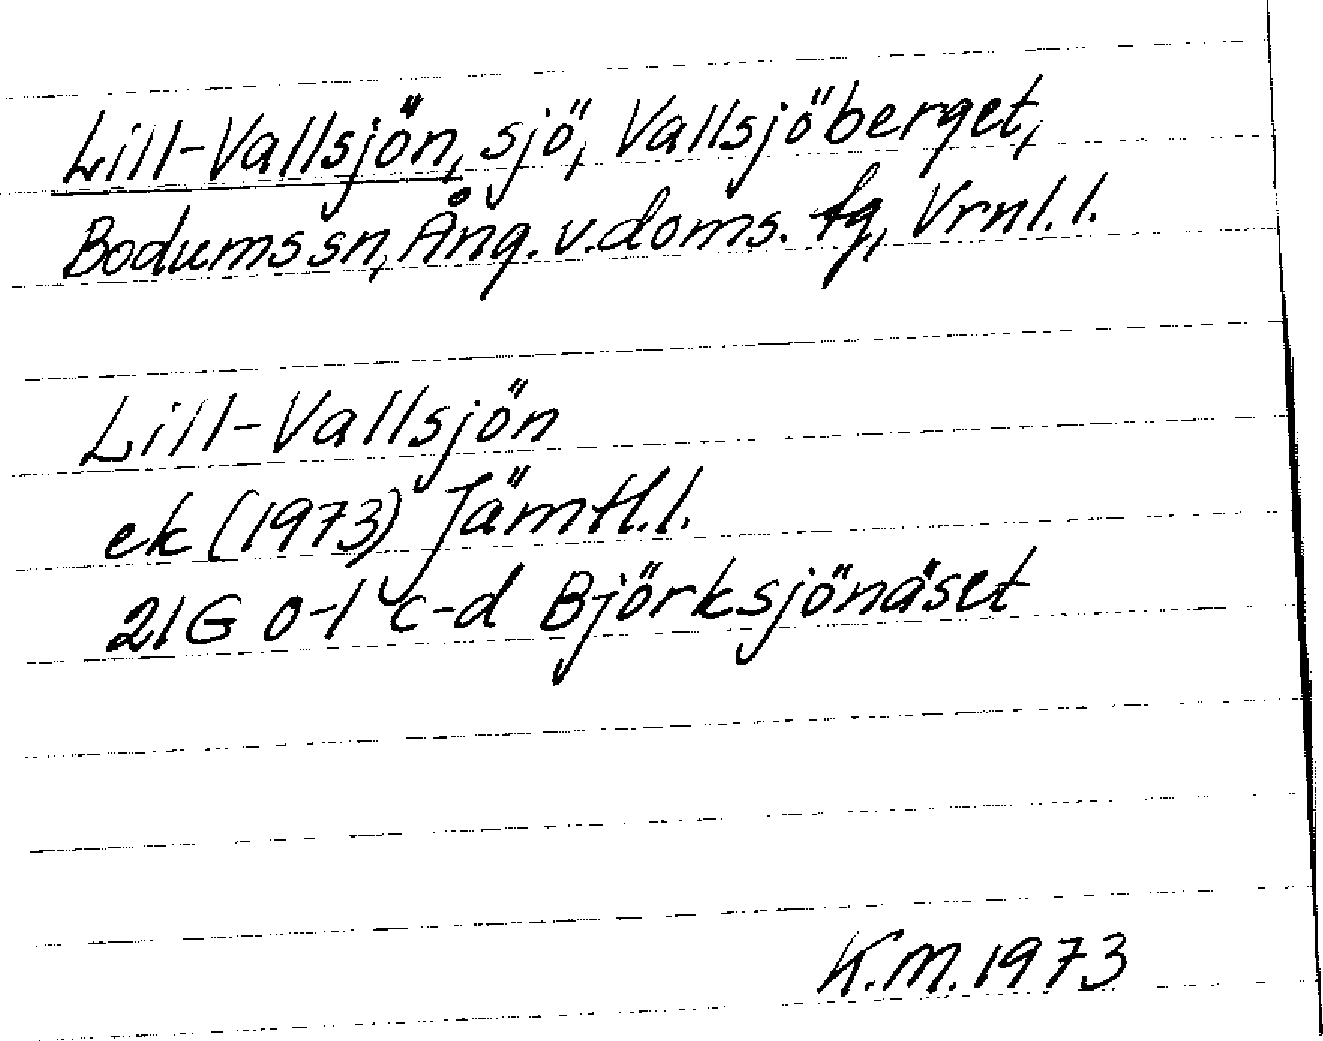 Lill-Vallsjön, sjö, Vallsjöberget,
Bodums sn, Ång. v. doms. fg, Vrnl. l.
Lill-Vallsjön
ek (1973) Jämtl. l.
21G 0-1 c-d Björksjönäset
K.M. 1973